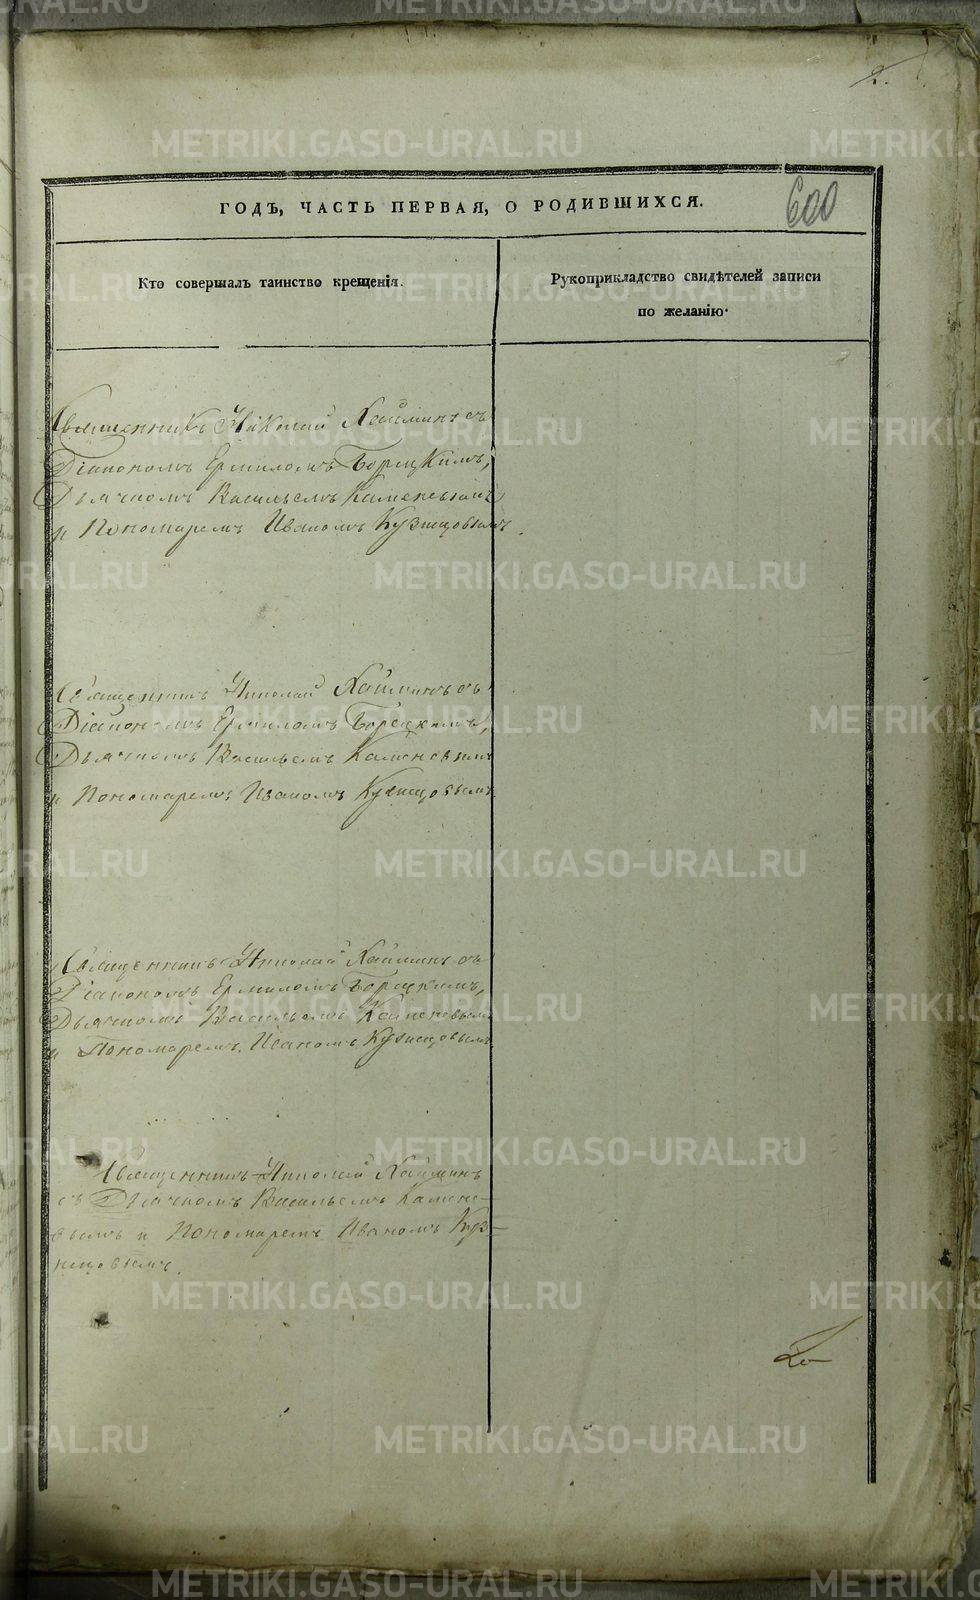 2.
ГОДЪ, ЧАСТЬ ПЕРВАЯ, О РОДИВШИХСЯ.
600
Кто совершалъ таинство крещенія.
Рукоприкладство свидѣтелей записи
по желанію.
Священникъ Николай Хайминъ съ
Діакономъ Ермиломъ Борецкимъ,
Дьячкомъ Васильемъ Каменевымъ
и Пономаремъ Иваномъ Кузнецовымъ.
Священникъ Николай Хайминъ съ
Діакономъ Ермиломъ Борецкимъ,
Дьячкомъ Васильемъ Каменевымъ
и Пономаремъ Иваномъ Кузнецовымъ
Священникъ Николай Хайминъ съ
Діакономъ Ермиломъ Борецкимъ,
Дьячкомъ Васильемъ Каменевымъ
и Пономаремъ Иваномъ Кузнецовымъ
Священникъ Николай Хайминъ
съ Дьячкомъ Васильемъ Камене-
вымъ и Пономаремъ Иваномъ Куз-
нецовымъ.
METRIKI.GASO-URAL.RU